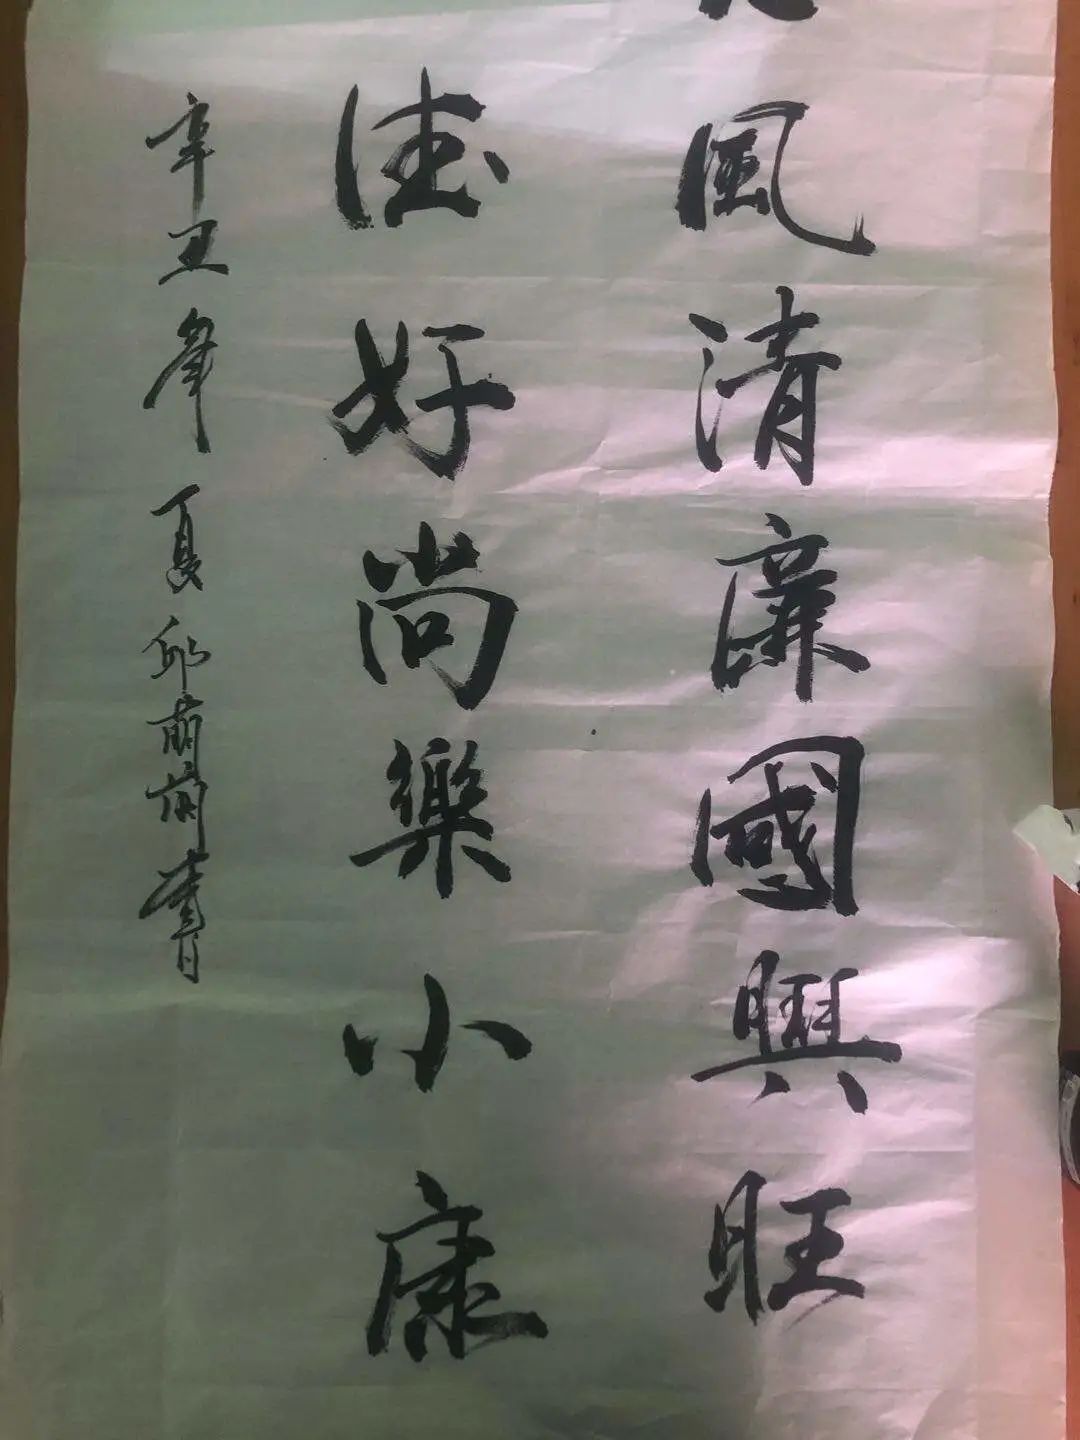 風清廉國興旺
德好尚樂小康
辛丑年夏邱萌蘭書